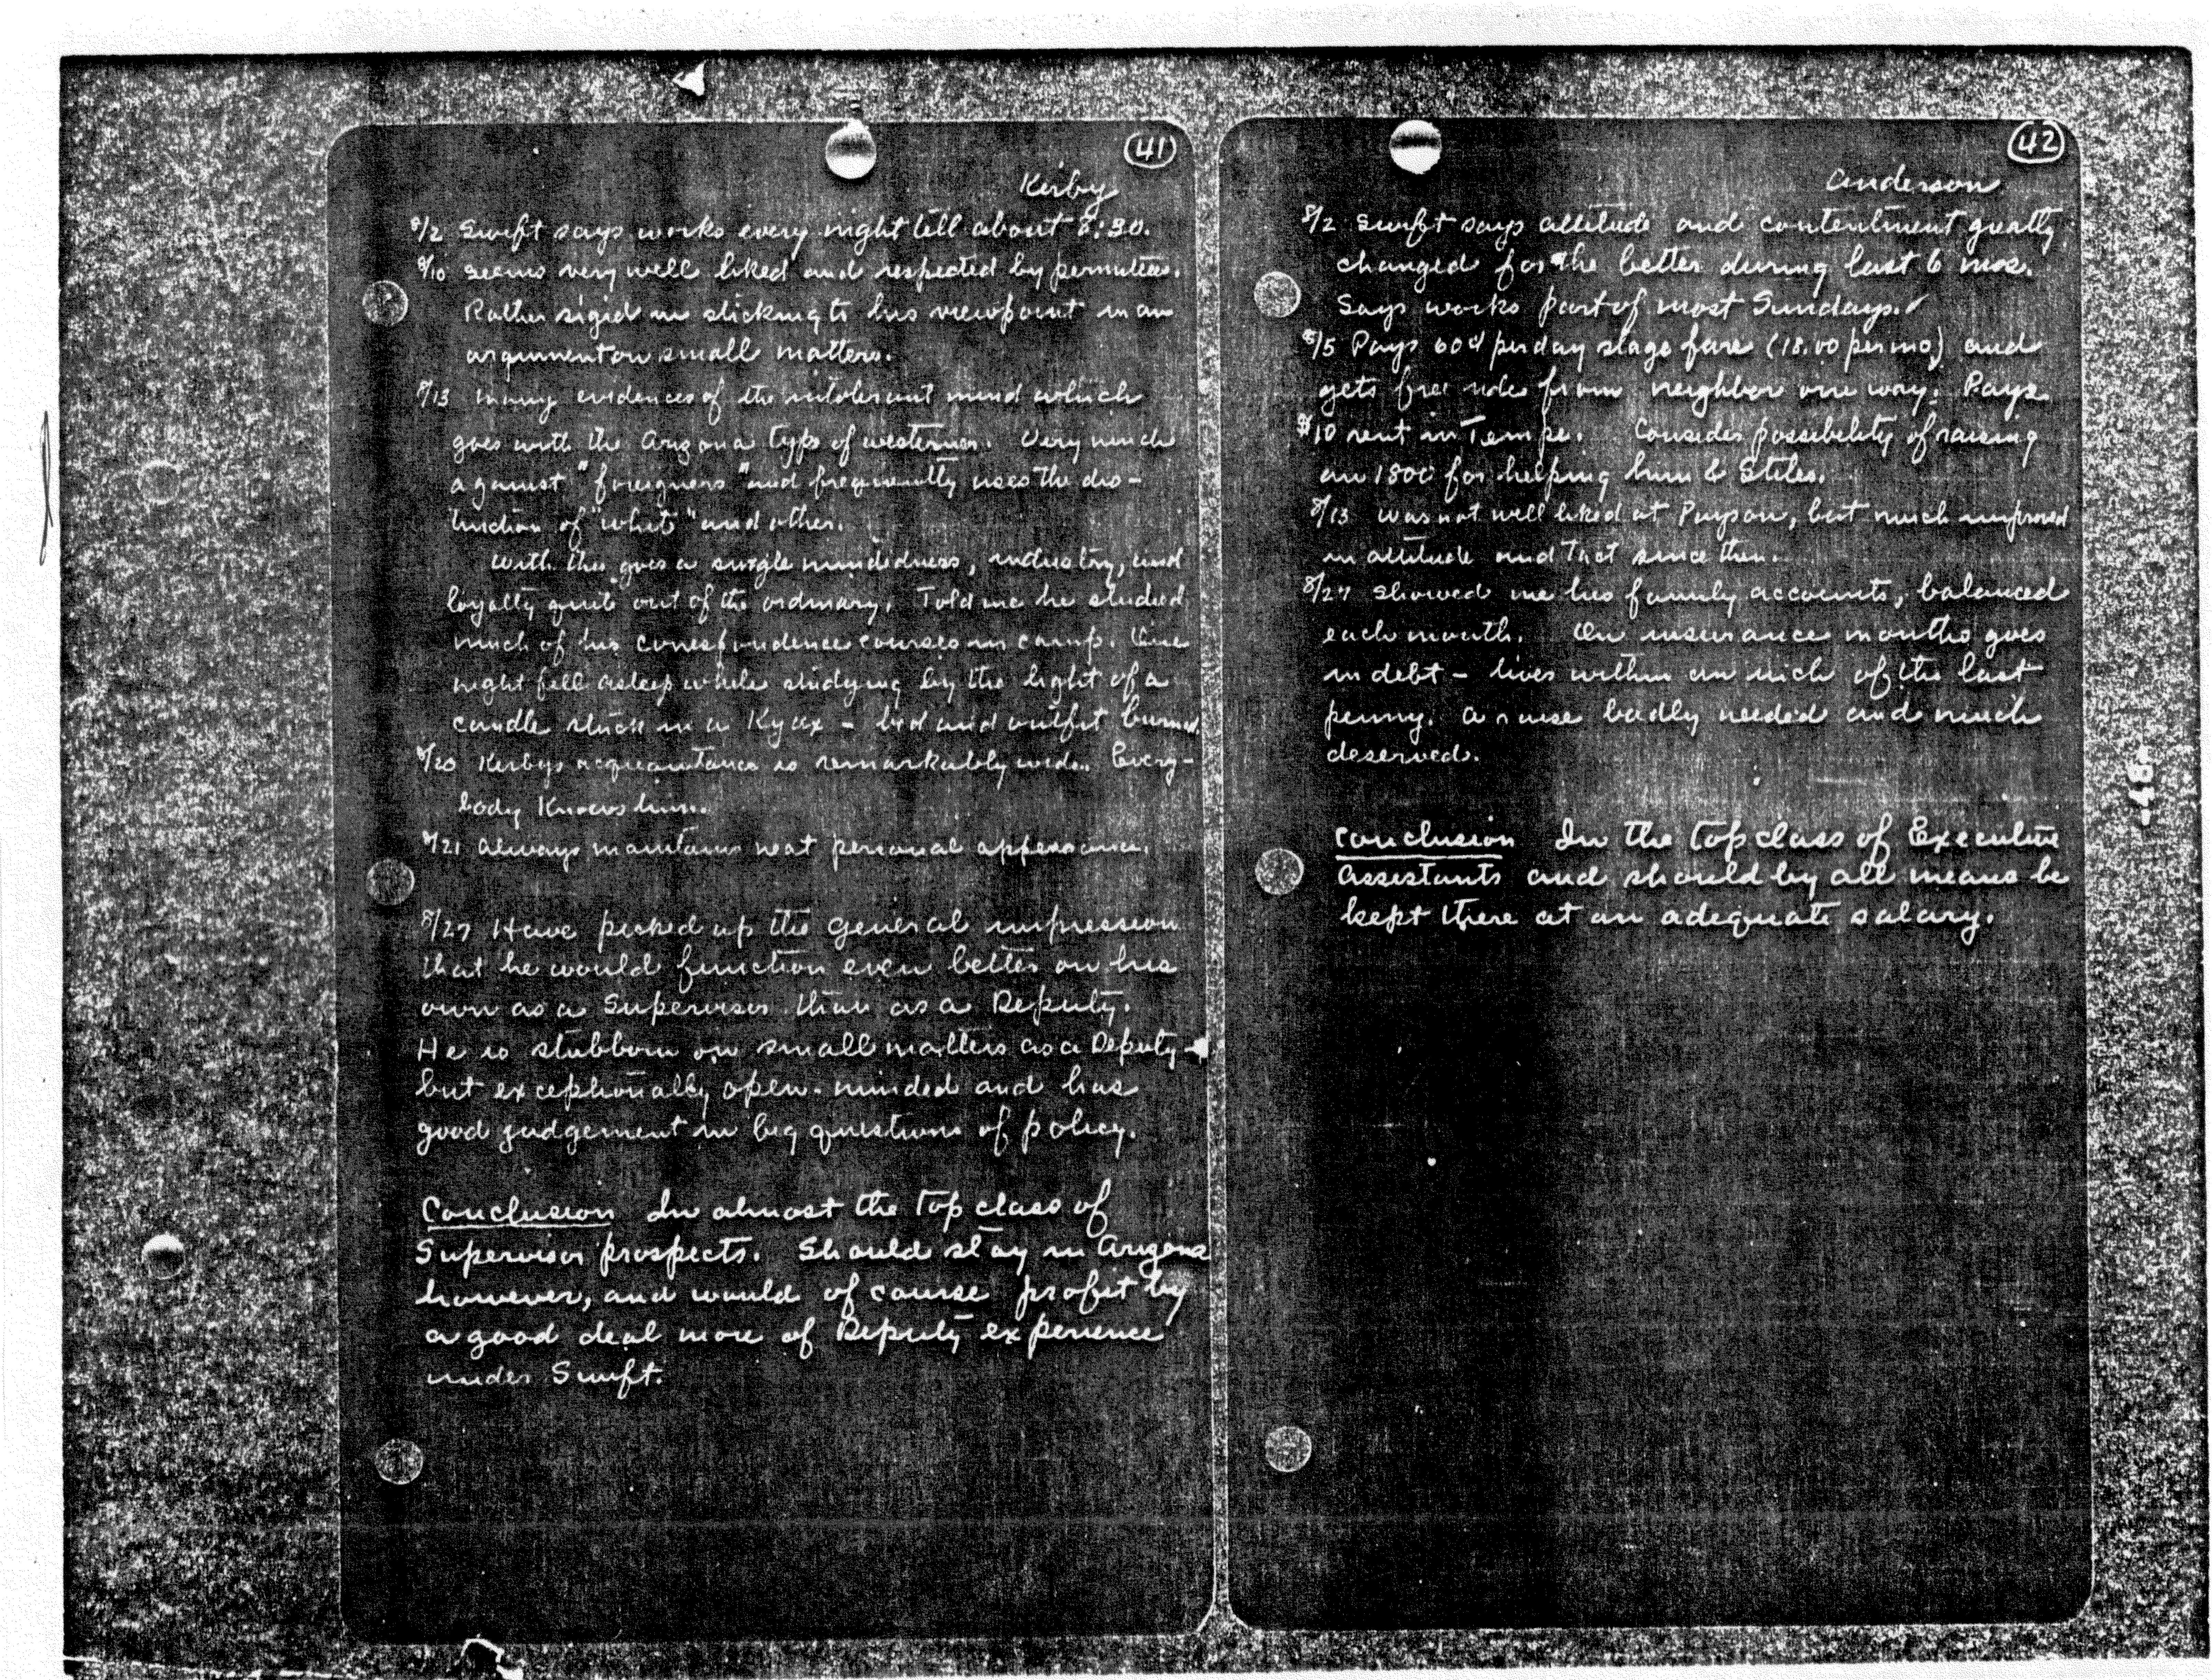 41
Kirby
8/2 Swift says works every night till about 8:30.
8/10 Seems very well liked and respected by permittees.
Rather rigid in sticking to his viewpoint in an
argument on small matters.
8/13 Many evidences of the intolerant mind which
goes with the Arizona type of westerner. Very much
against "foreigners" and frequently uses the dis-
tinction of "white" and other.
With this goes a single mindedness, industry, and
loyalty quite out of the ordinary. Told me he studied
much of his correspondence courses in camp. One
night fell asleep while studying by the light of a
candle stuck in a Kyax - bed and outfit burned.
8/20 Kirbys acquaintance is remarkably wide. Every-
body Knows him.
8/21 Always maintains neat personal appearance.
8/27 Have picked up the general impression
that he would function even better on his
own as a Supervisor than as a Deputy.
He is stubborn on small matters as a Deputy -
but exceptionally open-minded and has
good judgement in big questions of policy.
Conclusion In almost the top class of
Supervisor prospects. Should stay in Arizona
however, and would of course profit by
a good deal more of Deputy experience
under Swift.
42
Anderson
8/2 Swift says attitude and contentment greatly
changed for the better during last 6 mos.
Says works part of most Sundays.
8/5 Pays 60¢ per day stage fare (18.00 per mo) and
gets free ride from neighbor one way. Pays
$10 rent in Tempe. Consider possibility of raising
an 1800 for helping him & Stiles.
8/13 Was not well liked at Payson, but much improved
in attitude and tact since then.
8/27 Showed me his family accounts, balanced
each month. On insurance months goes
in debt - lives within an inch of the last
penny. A raise badly needed and much
deserved.
Conclusion In the top class of Executive
Assistants and should by all means be
kept there at an adequate salary.
-48-